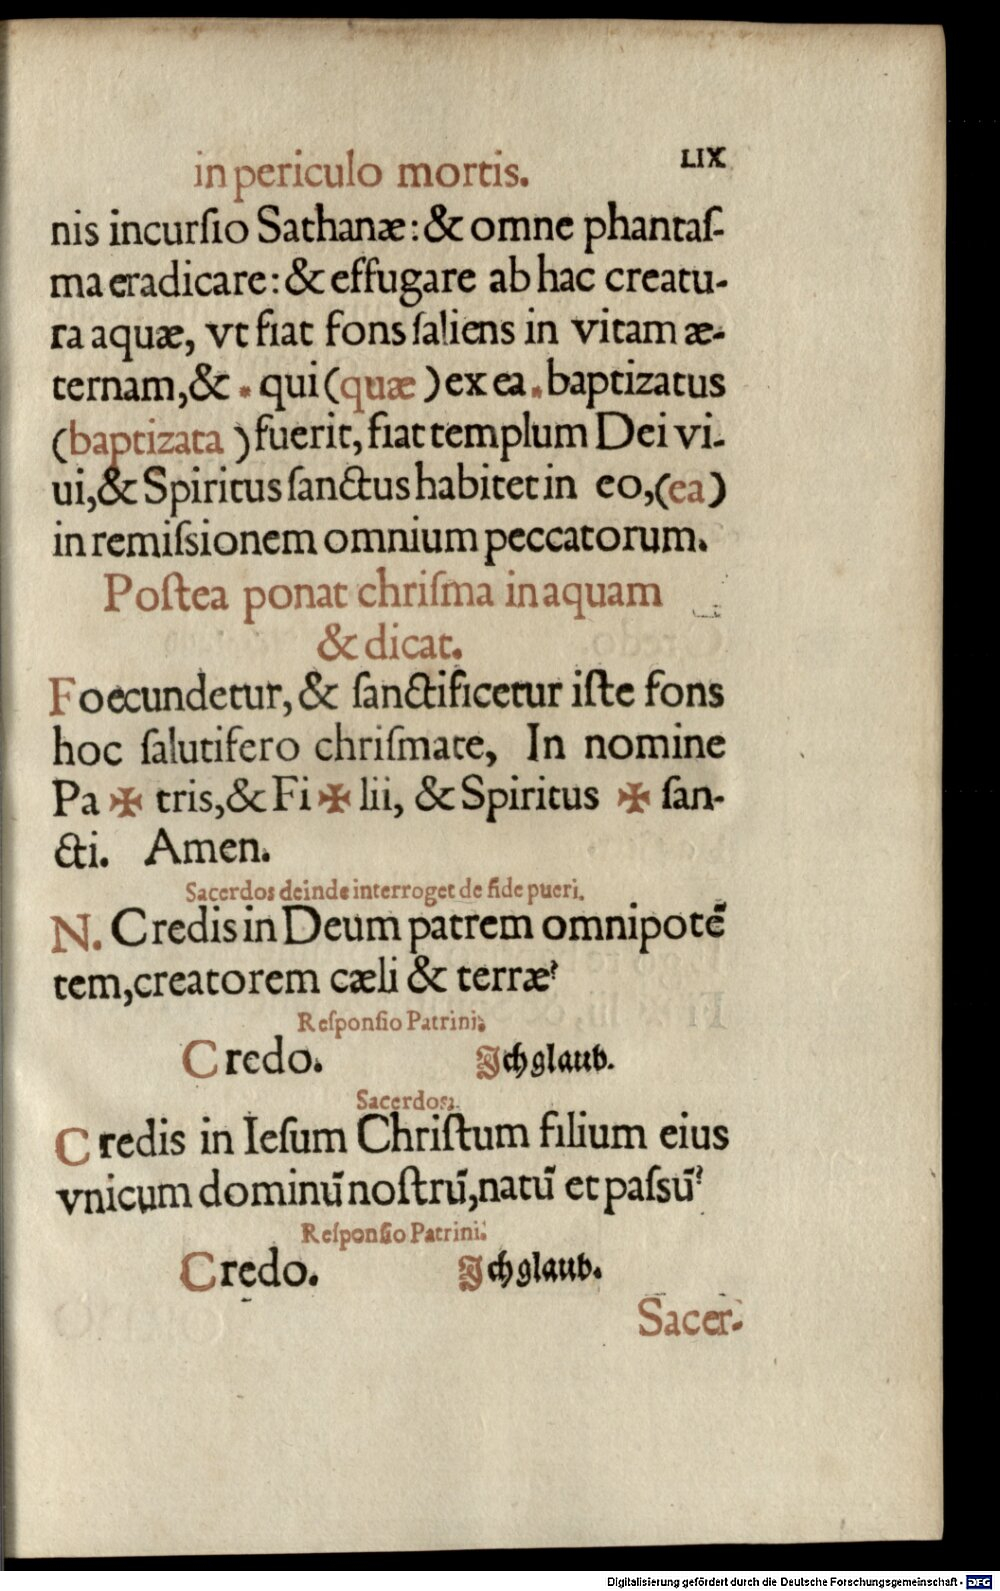 in periculo mortis. LIX
nis incurſio Sathanæ: & omne phantaſ-
ma eradicare: & effugare ab hac creatu-
ra aquæ, vt fiat fons ſaliens in vitam æ-
ternam, & * qui (quæ) ex ea * baptizatus
(baptizata) fuerit, fiat templum Dei vi-
ui, & Spiritus ſanctus habitet in eo, (ea)
in remiſsionem omnium peccatorum.
Poſtea ponat chriſma in aquam
& dicat.
Foecundetur, & ſanctificetur iſte fons
hoc ſalutifero chriſmate, In nomine
Pa ✠ tris, & Fi ✠ lii, & Spiritus ✠ ſan-
cti. Amen.
Sacerdos deinde interroget de fide pueri.
N. Credis in Deum patrem omnipotẽ
tem, creatorem cæli & terræ?
Reſponſio Patrini.
Credo. Ich glaub.
Sacerdos.
Credis in Ieſum Chriſtum filium eius
vnicum dominũ noſtrũ, natũ et paſsũ?
Reſponſio Patrini.
Credo. Ich glaub.
Sacer-
Digitalisierung gefördert durch die Deutsche Forschungsgemeinschaft - DFG